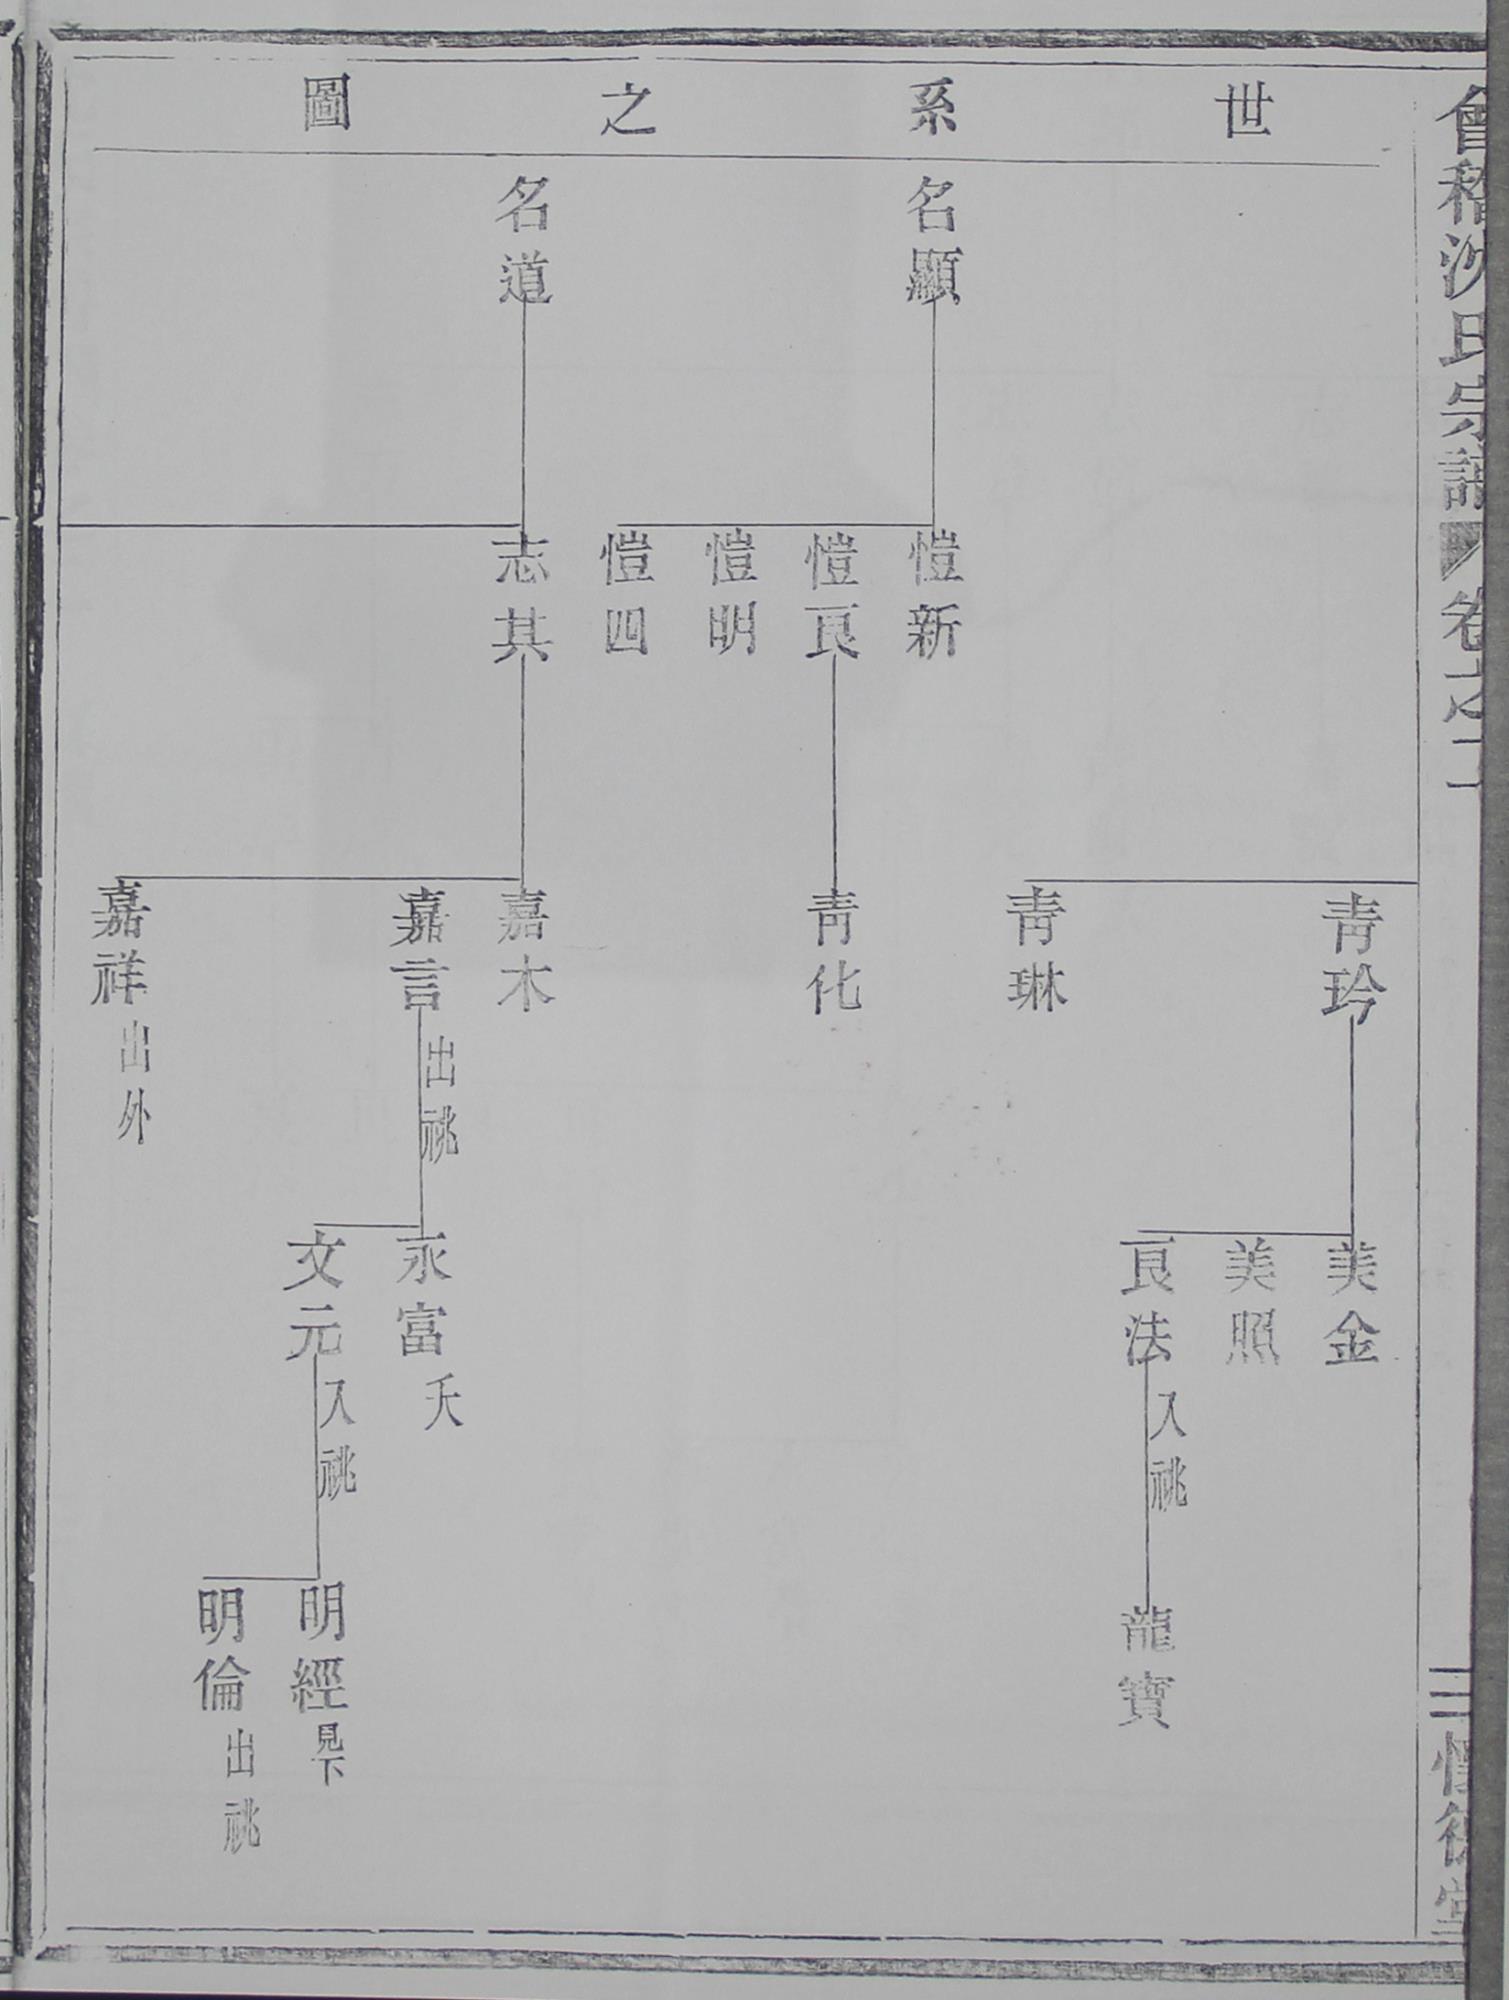 會稽沈氏宗譜 卷之二
三 懷德堂
世系之圖
名顯
名道
愷新
愷良
愷明
愷四
志其
青玲
青琳
青化
嘉木
嘉言 出祧
嘉祥 出外
美金
美照
良法 入祧
永富 夭
文元 入祧
龍寶
明經 見下
明倫 出祧